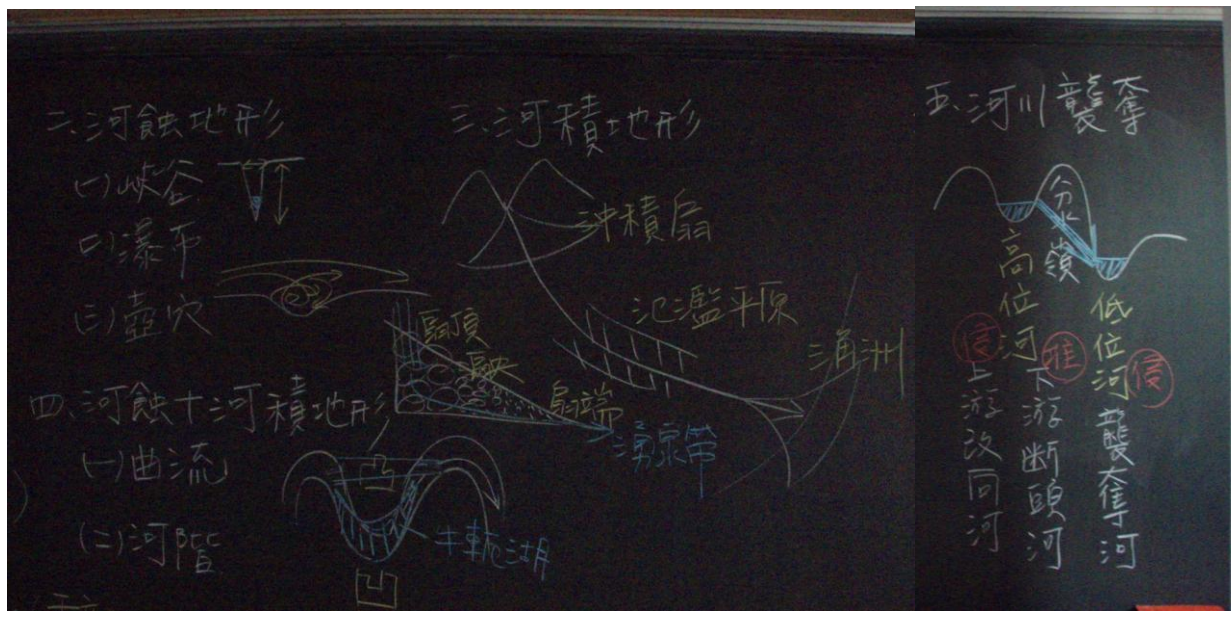 二、河蝕地形
(一)峽谷
(二)瀑布
(三)壺穴
四、河蝕十河積地形
(一)曲流
(二)河階
凸
凹
牛軛湖
三、河積地形
沖積扇
扇頂
扇央
扇端
湧泉帶
氾濫平原
三角洲
五、河川襲奪
分水嶺
高位河
低位河
侵
上游改向河
下游斷頭河
侵
襲奪河